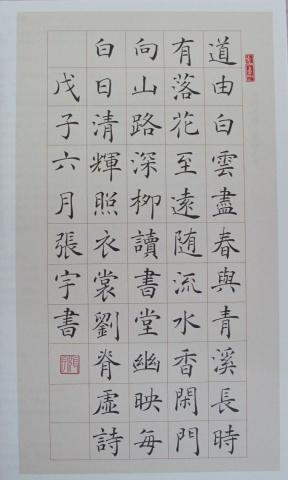 道由白雲盡春與青溪長時
有落花至遠随流水香閑門
向山路深柳讀書堂幽映每
白日清輝照衣裳劉脊虛詩
戊子六月張宇書